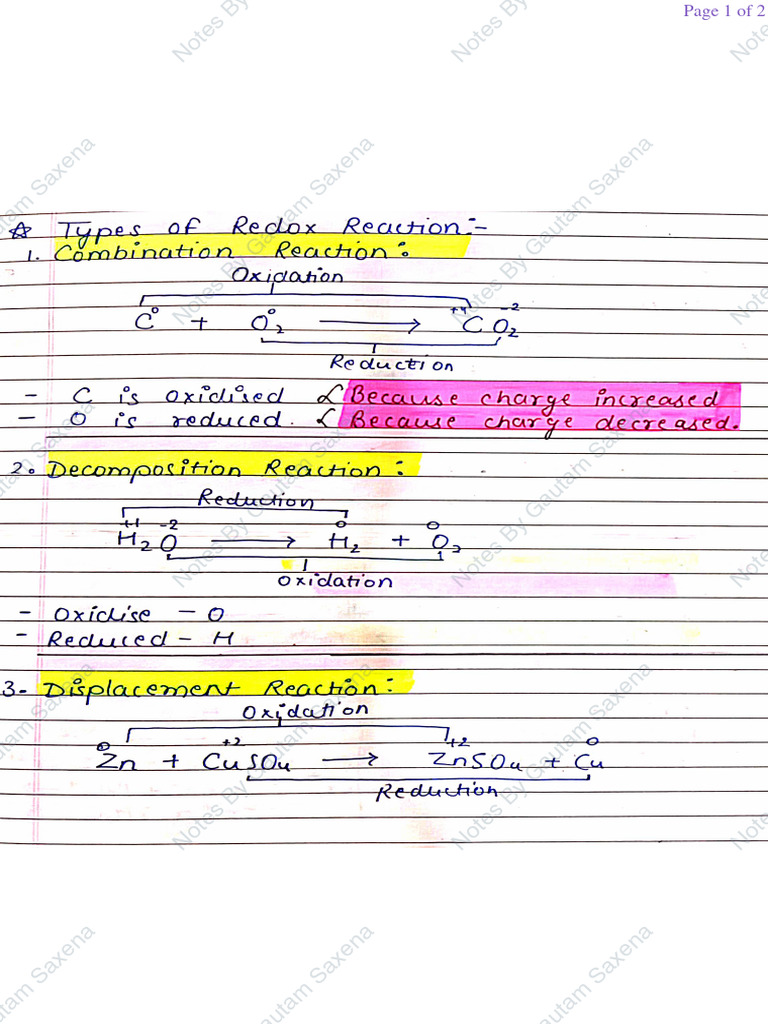 Page 1 of 2
Notes By Gautam Saxena
☆ Types of Redox Reaction:-
1. Combination Reaction:
Oxidation
C⁰ + O₂⁰ ⟶ C⁺⁴O₂⁻²
Reduction
- C is oxidised { Because charge increased
- O is reduced. { Because charge decreased.
2. Decomposition Reaction:
Reduction
H₂⁺¹O⁻² ⟶ H₂⁰ + O₂⁰
Oxidation
- Oxidise - O
- Reduced - H
3- Displacement Reaction:
Oxidation
Zn⁰ + Cu⁺²SO₄ ⟶ Zn⁺²SO₄ + Cu⁰
Reduction